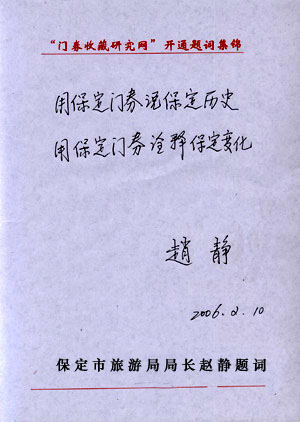 “门券收藏研究网”开通题词集锦
用保定门券说保定历史
用保定门券诠释保定变化
赵静
2006.2.10
保定市旅游局局长赵静题词